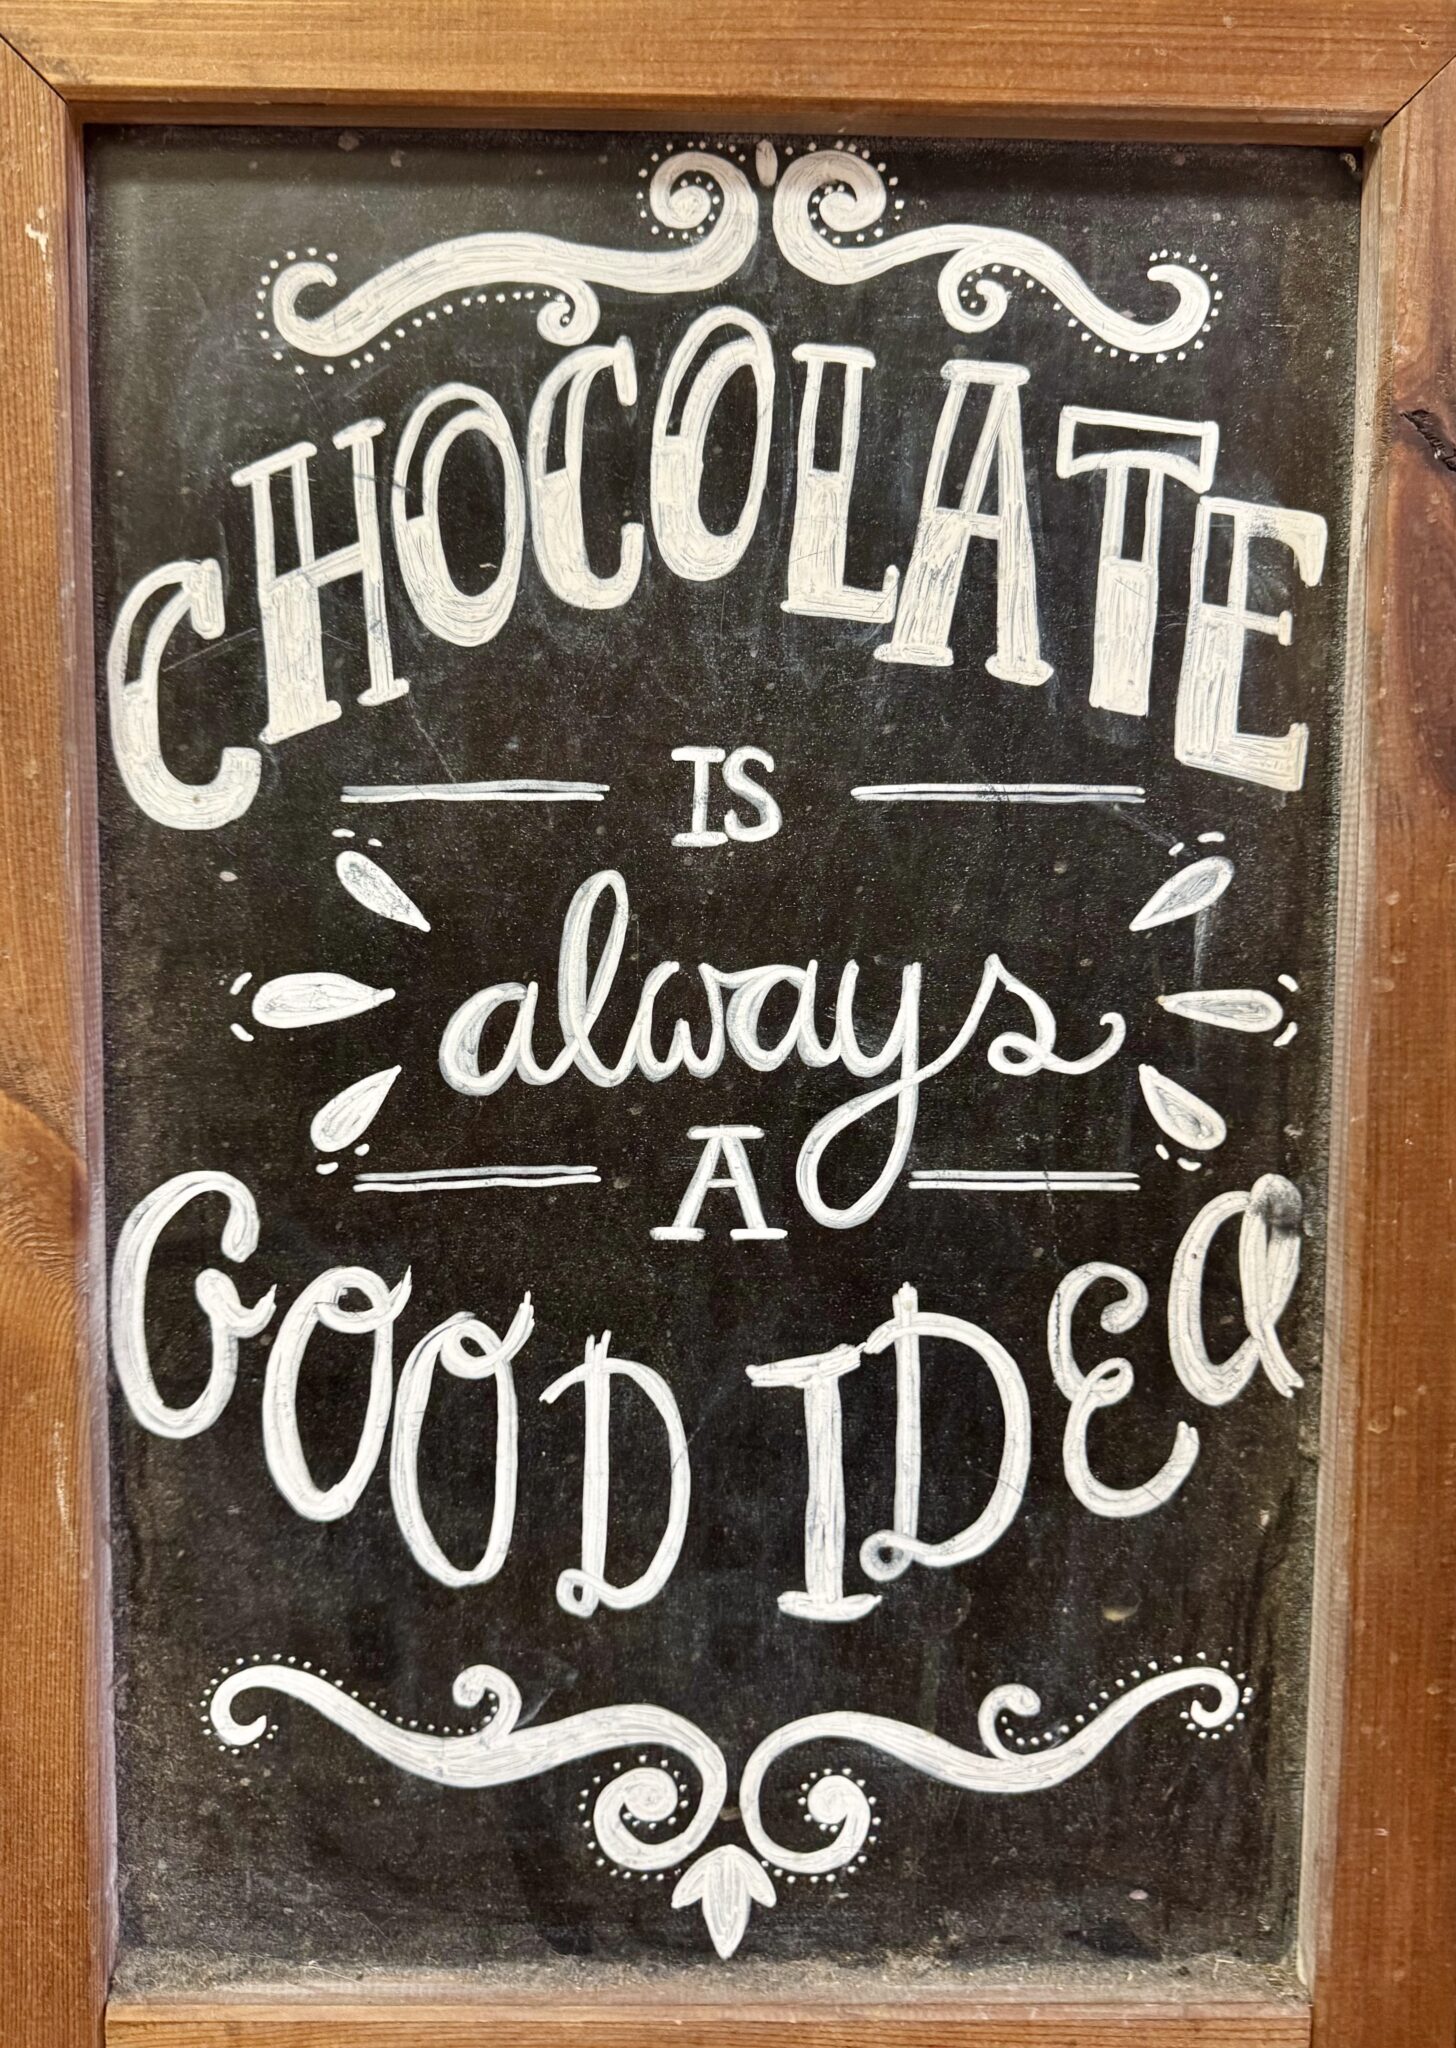 CHOCOLATE
IS
always
A
GOOD IDEa